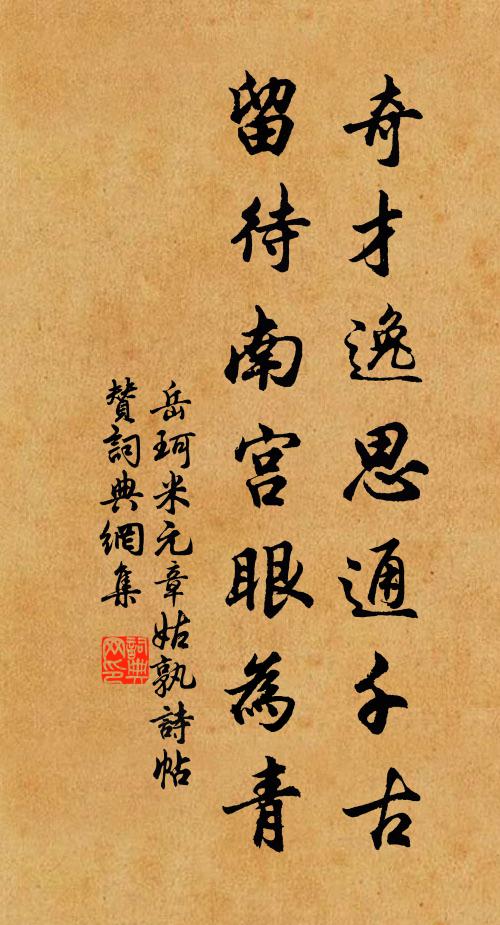 奇才逸思通千古
留待南宫眼為青
岳珂米元章姑孰詩帖
贊詞典網集
詞典网印